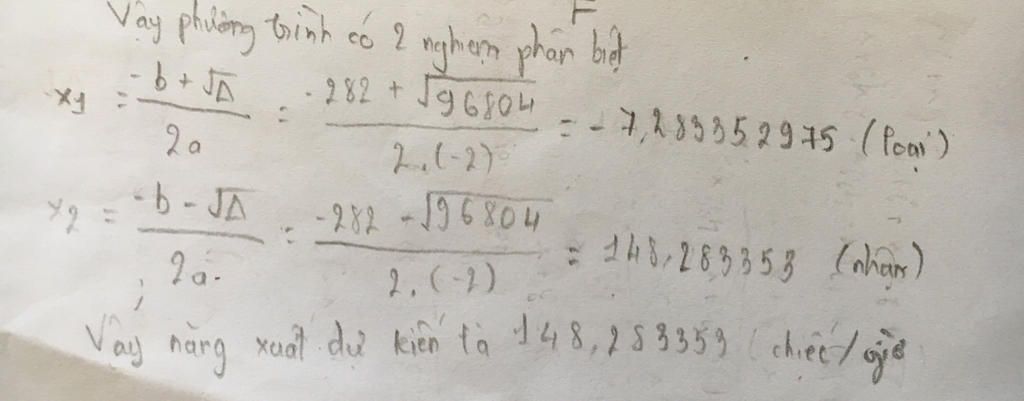 Vậy phương trình có 2 nghiệm phân biệt
x1 = (-b + √Δ)/2a = (-282 + √96804)/(2.(-2)) = -7,283352975 (loại)
x2 = (-b - √Δ)/2a. = (-282 - √96804)/(2.(-2)) = 148,283353 (nhận)
Vậy năng xuất dự kiến là 148,283353 (chiếc/